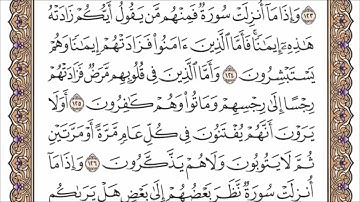 ١٢٣ وَإِذَا مَآ أُنزِلَتْ سُورَةٌ فَمِنْهُم مَّن يَقُولُ أَيُّكُمْ زَادَتْهُ
هَٰذِهِۦٓ إِيمَٰنًا ۚ فَأَمَّا ٱلَّذِينَ ءَامَنُوا۟ فَزَادَتْهُمْ إِيمَٰنًا وَهُمْ
يَسْتَبْشِرُونَ ١٢٤ وَأَمَّا ٱلَّذِينَ فِى قُلُوبِهِم مَّرَضٌ فَزَادَتْهُمْ
رِجْسًا إِلَىٰ رِجْسِهِمْ وَمَاتُوا۟ وَهُمْ كَٰفِرُونَ ١٢٥ أَوَلَا
يَرَوْنَ أَنَّهُمْ يُفْتَنُونَ فِى كُلِّ عَامٍ مَّرَّةً أَوْ مَرَّتَيْنِ
ثُمَّ لَا يَتُوبُونَ وَلَا هُمْ يَذَّكَّرُونَ ١٢٦ وَإِذَا مَآ
أُنزِلَتْ سُورَةٌ نَّظَرَ بَعْضُهُمْ إِلَىٰ بَعْضٍ هَلْ يَرَىٰكُم